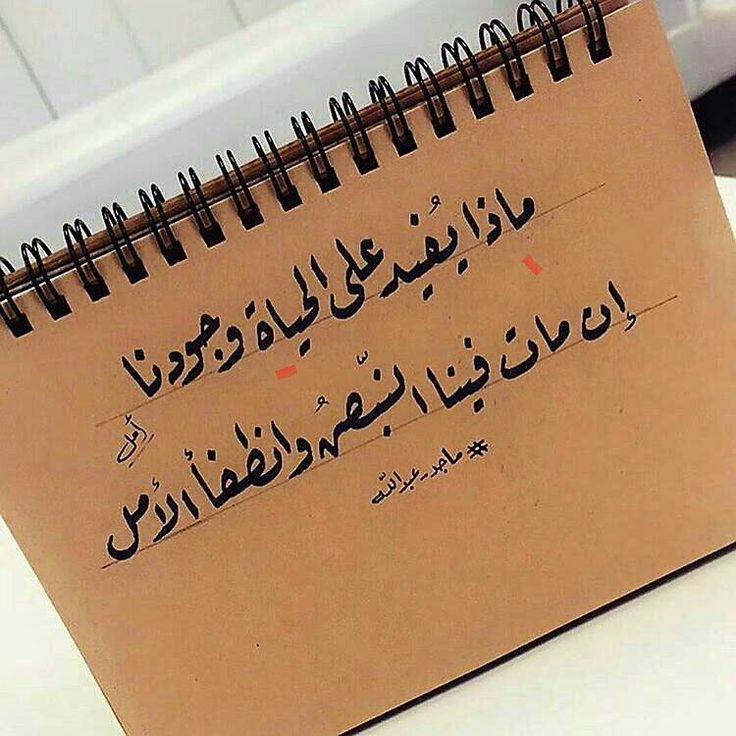 ماذا يُفيد على الحياة وجودنا
إن مات فينا النبّضُ وانطفأ الأمل
أمل
#ماجد_عبدالله